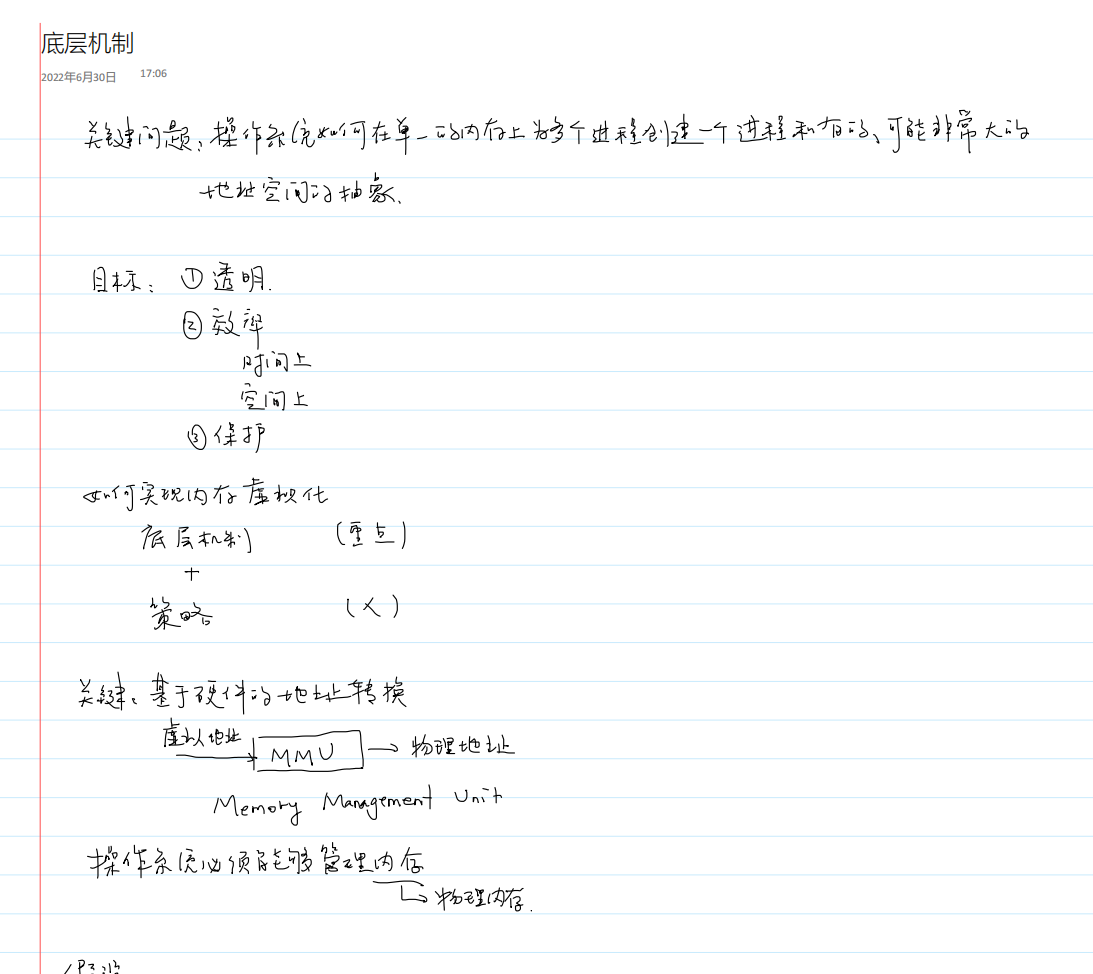 底层机制
2022年6月30日 17:06
关键问题：操作系统如何在单一的内存上为多个进程创建一个进程私有的、可能非常大的
地址空间的抽象.
目标： ① 透明.
② 效率
时间上
空间上
③ 保护
如何实现内存虚拟化
底层机制 （重点）
+
策略 （×）
关键：基于硬件的地址转换
虚拟地址 MMU → 物理地址
Memory Management Unit
操作系统必须能够管理内存
物理内存.